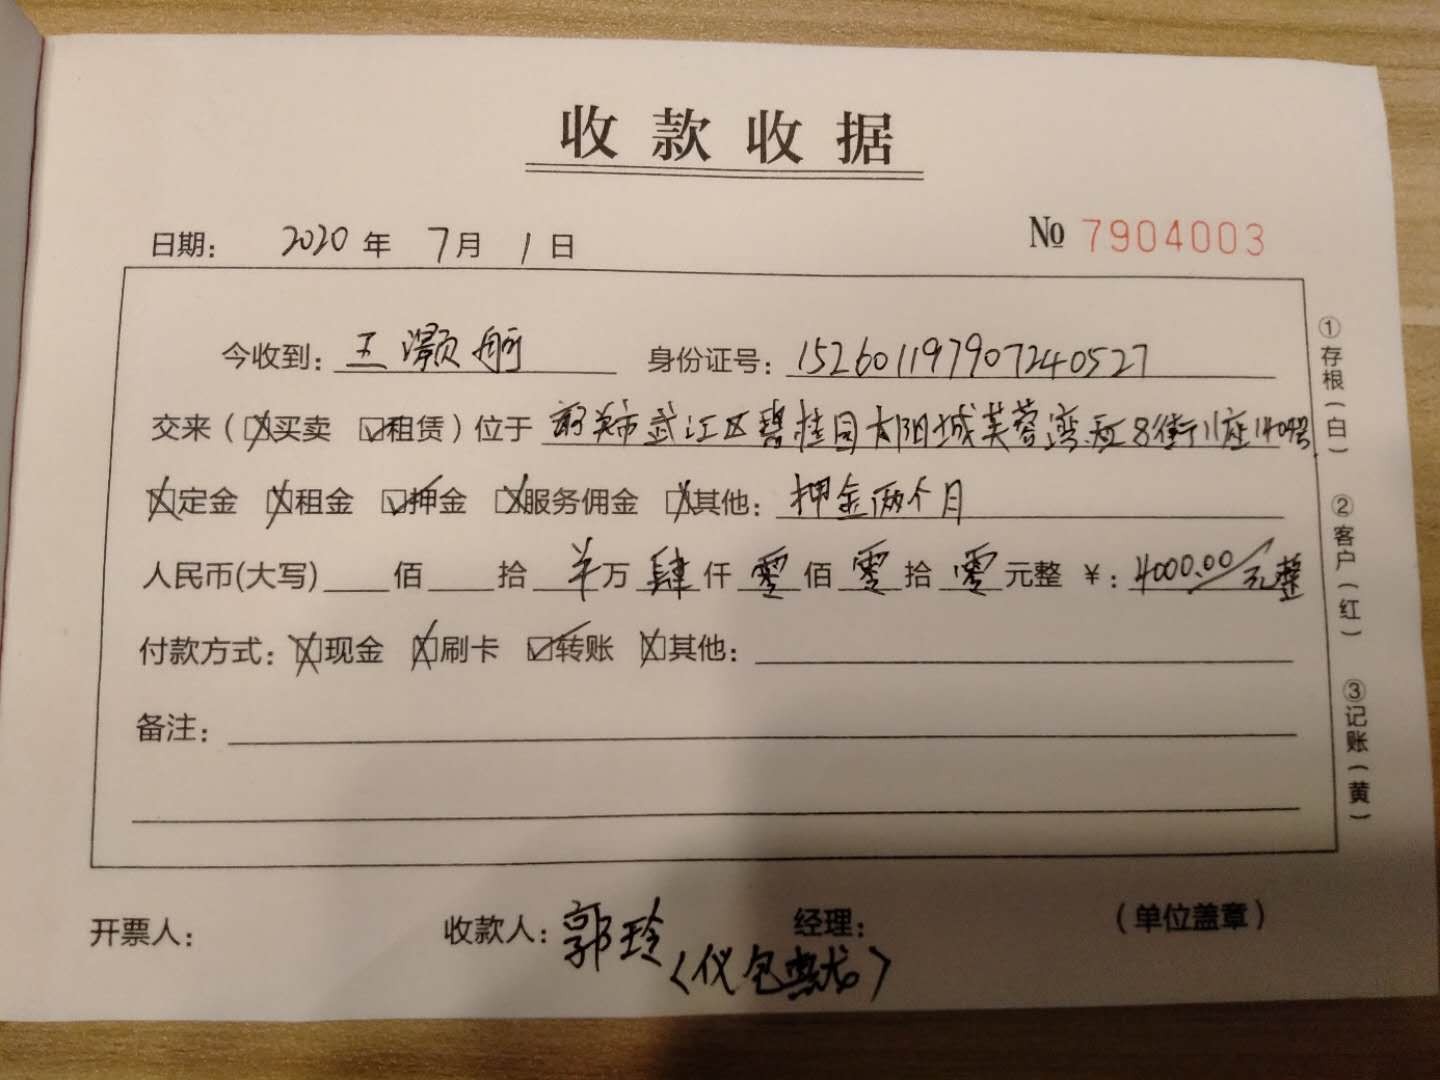 收款收据
日期： 2020 年 7 月 1 日 № 7904003
今收到：王灏舸 身份证号：152601197907240527
交来（☒买卖 ☑租赁）位于 韶关市武江区碧桂园太阳城芙蓉湾 8街11座1404号
☒定金 ☒租金 ☑押金 ☒服务佣金 ☒其他：押金两个月
人民币(大写) 佰 拾 羊万 肆仟 零佰 零拾 零元整 ￥：4000.00/元整
付款方式：☒现金 ☒刷卡 ☑转账 ☒其他：
备注：
开票人： 收款人：郭玲 经理： （单位盖章）
①存根（白） ②客户（红） ③记账（黄）